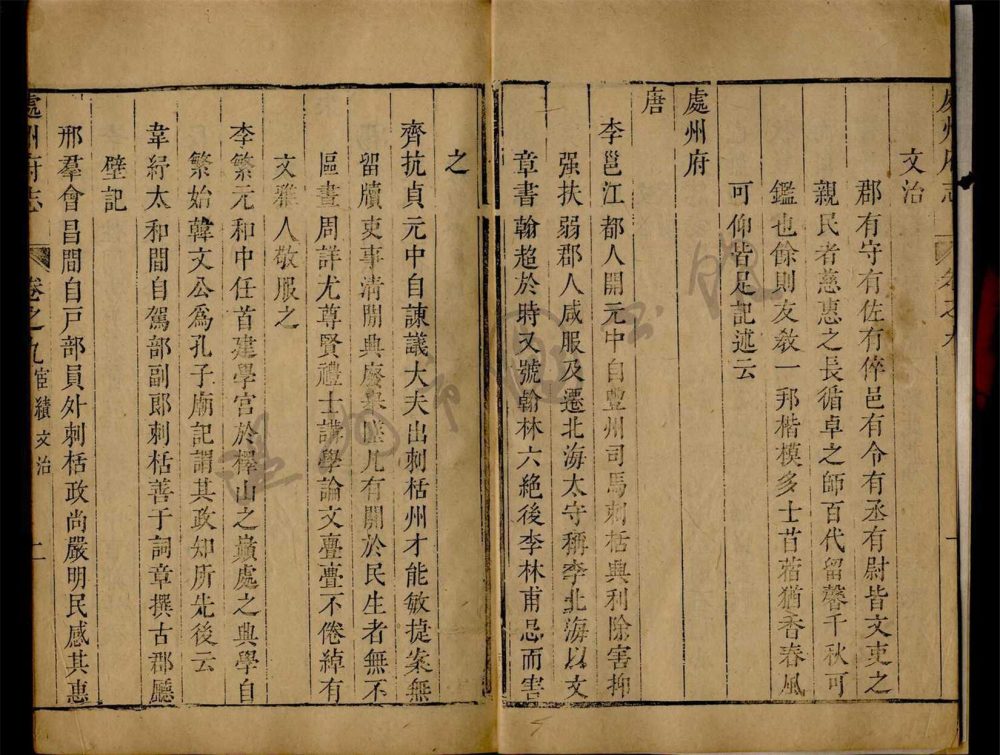 處州府志
卷之九
一
文治
郡有守有佐有倅邑有令有丞有尉皆文吏之
親民者慈惠之長循卓之師百代留馨千秋可
鑑也餘則友教一邦楷模多士苜蓿猶香春風
可仰皆足記述云
處州府
唐
李邕江都人開元中自豊州司馬刺栝興利除害抑
强扶弱郡人咸服及遷北海太守稱李北海以文
章書翰超於時又號翰林六絕後李林甫忌而害
之
齊抗貞元中自諫議大夫出刺栝州才能敏捷案無
留牘吏事清閒典廢具匯凡有關於民生者無不
區畫周詳尤尊賢禮士講學論文亹亹不倦綽有
文雅人敬服之
李繁元和中任首建學宮於檡山之巔處之興學自
繁始韓文公爲孔子廟記謂其政知所先後云
韋紓太和間自駕部副郎刺栝善于詞章撰古郡廳
壁記
邢羣會昌間自戸部員外刺栝政尚嚴明民感其惠
處州府志
卷之九宦績文治
二